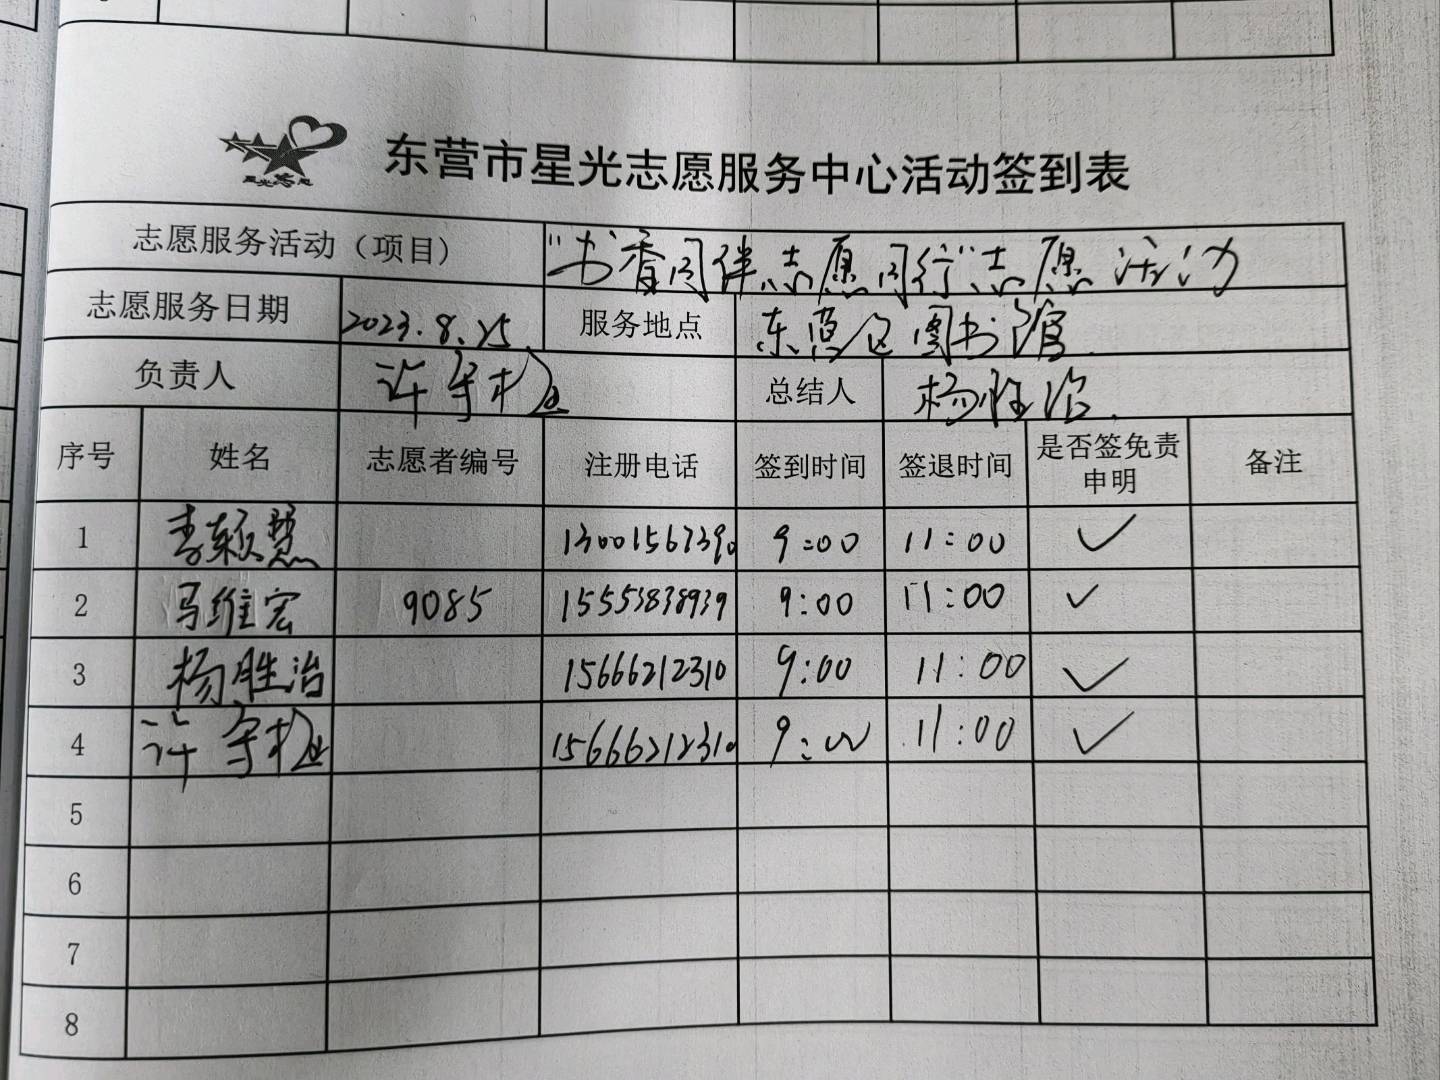 星光志愿
东营市星光志愿服务中心活动签到表
志愿服务活动（项目） "书香同伴志愿同行"志愿活动
志愿服务日期 2023.8.25. 服务地点 东营区图书馆.
负责人 许 总结人 杨胜治.
序号 姓名 志愿者编号 注册电话 签到时间 签退时间 是否签免责申明 备注
1 李颖慧 13001567390 9:00 11:00 ✓
2 马维宏 9085 15553838939 9:00 11:00 ✓
3 杨胜治 15666212310 9:00 11:00 ✓
4 许 15666212310 9:00 11:00 ✓
5
6
7
8